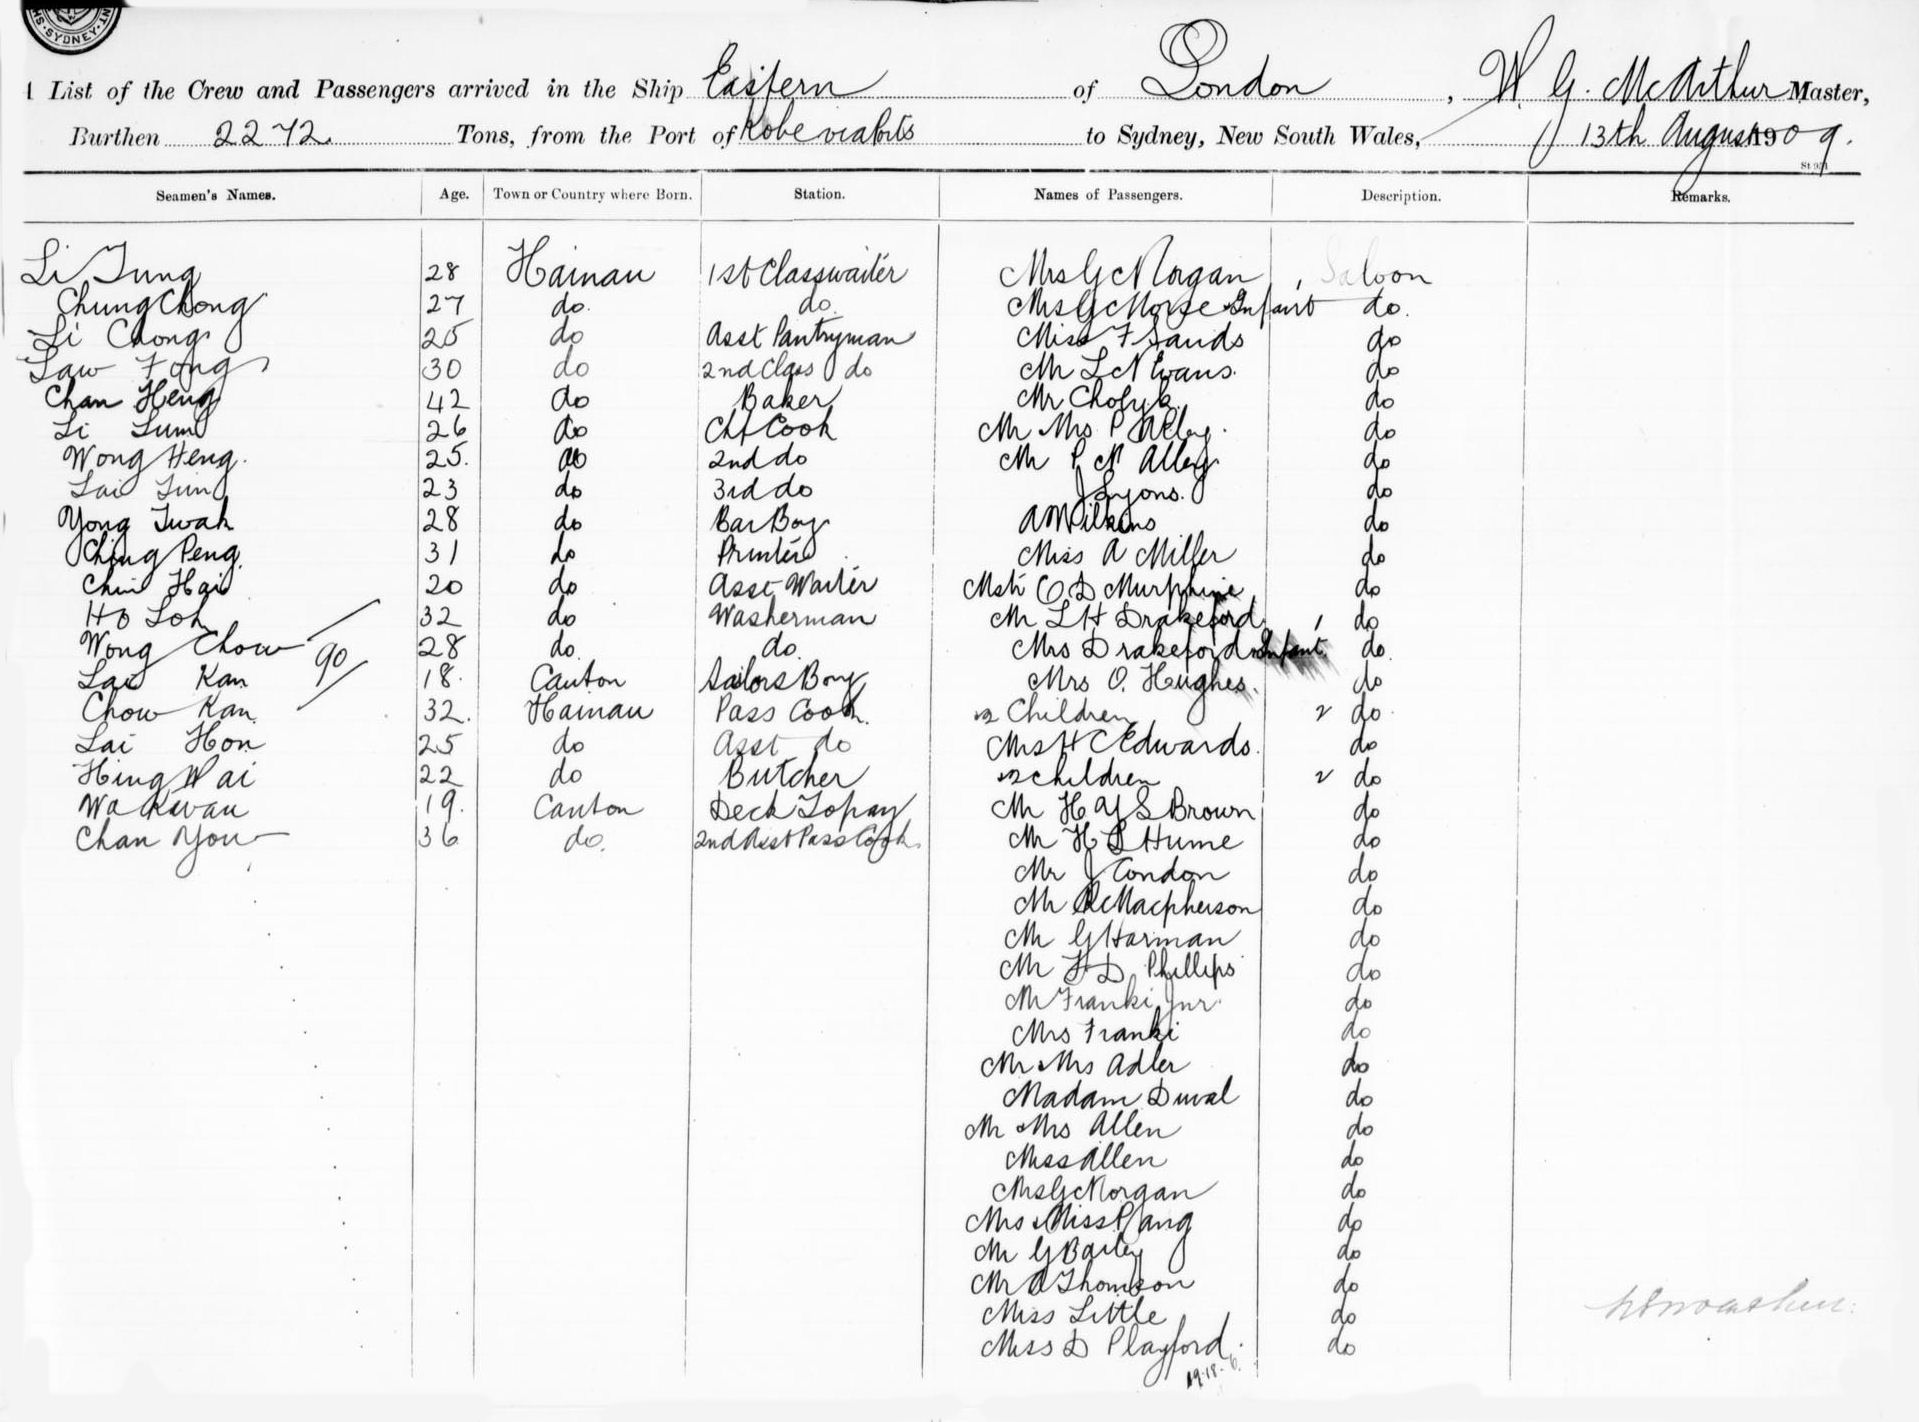 SYDNEY
List of the Crew and Passengers arrived in the Ship Eastern of London, W. G. McArthur Master,
Burthen 2272 Tons, from the Port of Kobe via Ports to Sydney, New South Wales, 13th August 1909.
Seamen's Names. Age. Town or Country where Born. Station. Names of Passengers. Description. Remarks.
Li Tung 28 Hainau 1st Class waiter Mrs G C Morgan 1 Saloon
Chung Chong 27 do. do. Mrs G Morse & Infant do.
Li Chong 25 do Asst Pantryman Miss F Sands do
Law Fong 30 do 2nd Class do Mr L N Evans. do
Chan Heng 42 do Baker Mr do
Li Lum 26 do Ch Cook Mr Mrs P Alley. do
Wong Heng. 25. do 2nd do Mr P N Alley do
Lai Lim 23 do 3rd do J Lyons. do
Yong Twah 28 do Bar Boy A Wilkins do
Ching Peng. 31 do Printer Miss A Miller do
Chin Hai 20 do Asst Waiter Mstr C D Murphine do
Ho Loh 32 do Washerman Mr L H Drakeford 1 do
Wong Chow 28 do. do. Mrs Drakeford & Infant. do.
90
Lai Kan 18. Canton Sailors Boy Mrs O. Hughes. do
Chow Kan. 32. Hainau Pass Cook. & 2 Children 2 do.
Lai Hon 25 do Asst do Mrs H C Edwards. do
Hing Wai 22 do Butcher & 2 children 2 do
Wa Kwau 19. Canton Deck Topay Mr H Y S Brown do
Chan You 36 do. 2nd Asst Pass Cook. Mr H S Hume do
Mr J Condon do
Mr R McMacpherson do
Mr G Harman do
Mr H D Phillips do
Mr Franki Jnr. do
Mrs Franki do
Mr & Mrs Adler do
Madam Duval do
Mr & Mrs Allen do
Miss Allen do
Mrs G C Morgan do
Mrs & Miss Pang do
Mr G Bailey do
Mr A Thomson do
Miss Little do
Miss D Playford. do
19.18.6.